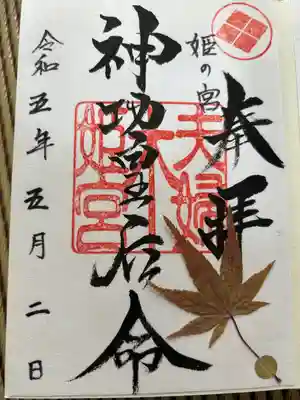 奉拝
姫の宮
神功皇后命
夫婦
姫宮
令和五年五月二日